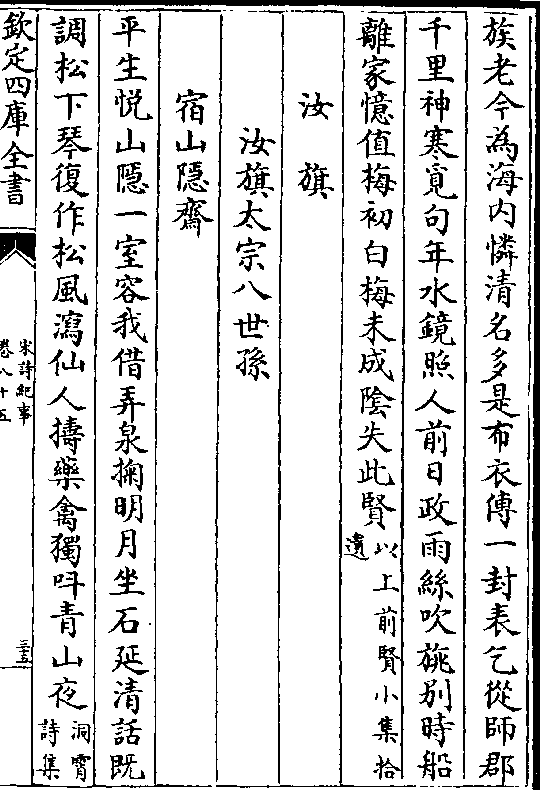 族老今為海内憐清名多是布衣傳一封表乞從師郡
千里神寒覓句年水鏡照人前日政雨絲吹旐别時船
離家憶值梅初白梅未成隂失此賢以上前賢小集拾遺
汝旗
汝旗太宗八世孫
宿山隱齋
平生悦山隱一室容我借弄泉掬明月坐石延清話既
調松下琴復作松風瀉仙人擣藥禽獨呌青山夜洞霄詩集
欽定四庫全書
宋詩紀事
卷八十五
三五